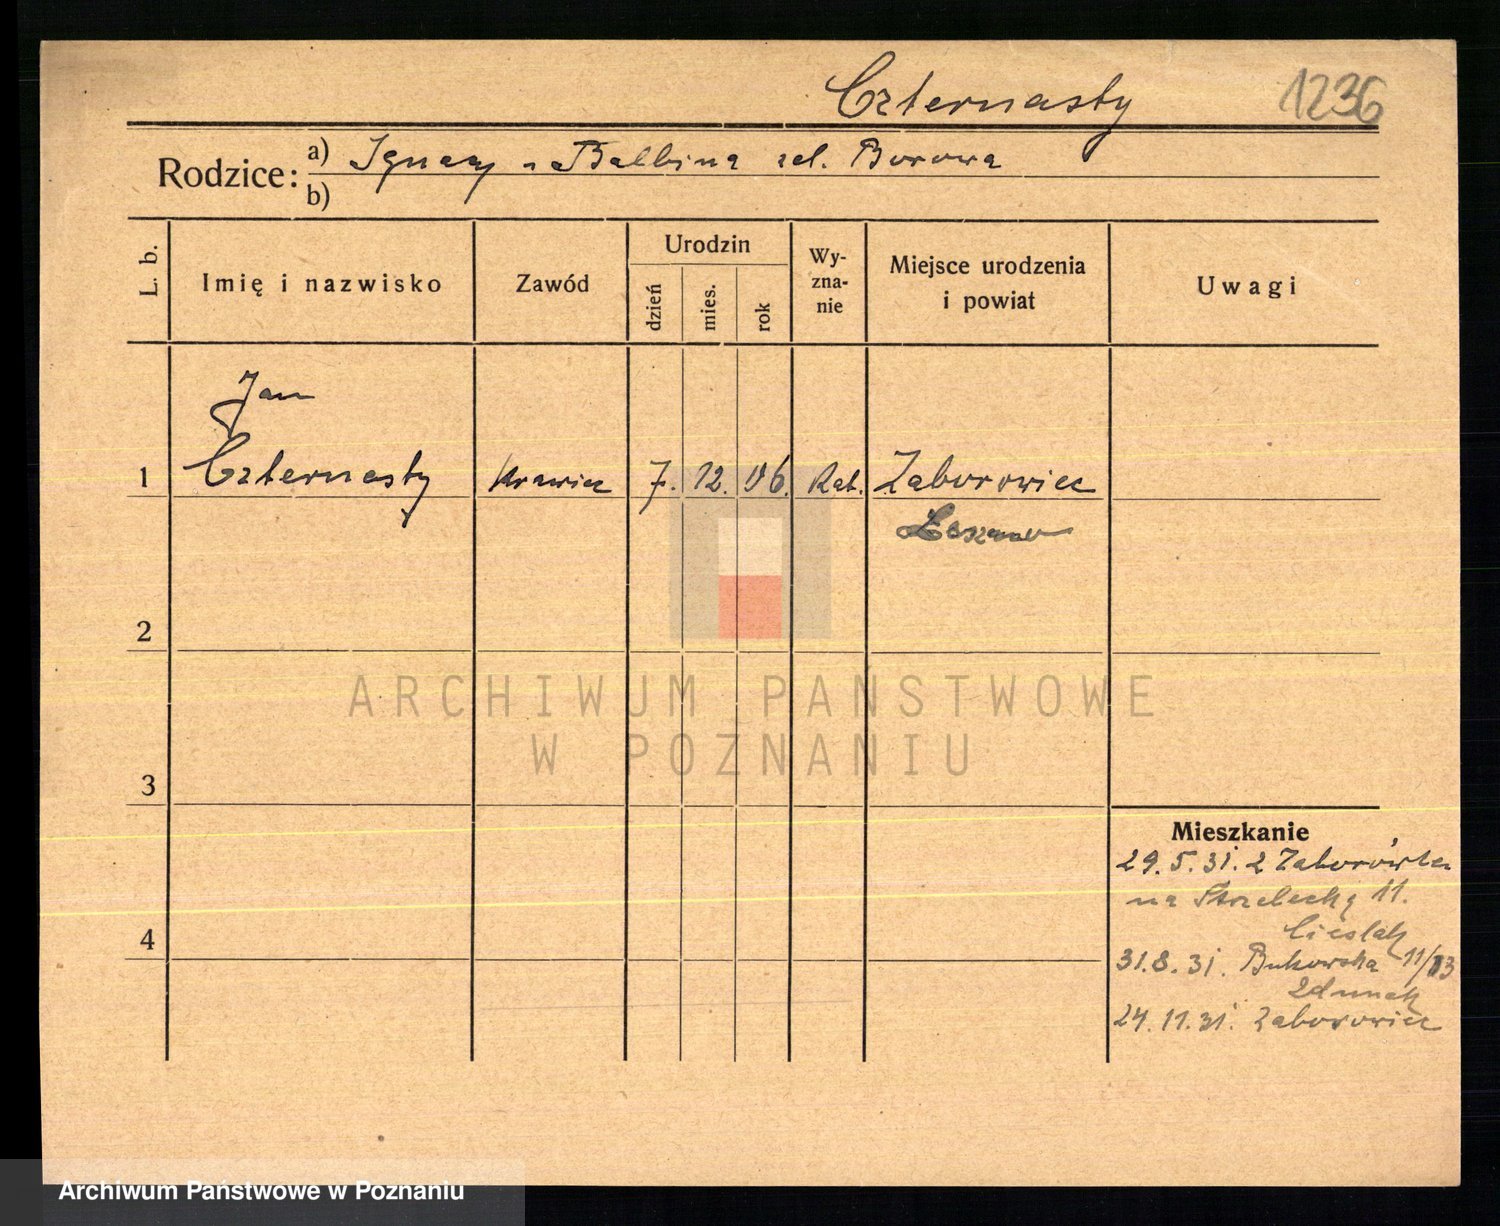 Czternasty 1236
Rodzice: a) Ignacy i Balbina zd. Borowa
b)
L. b. Imię i nazwisko Zawód Urodzin dzień mies. rok Wy-zna-nie Miejsce urodzenia i powiat Uwagi
Jan
1 Czternasty krawiec 7. 12. 06. Kat. Zaborowiec
Leszno
2
ARCHIWUM PAŃSTWOWE
W POZNANIU
3
Mieszkanie
29.5.31. z Zaborówka
na Strzelecką 11.
4 Cieślak
31.8.31. Bukowska 11/13
Zdunek
24.11.31. Zaborowiec
Archiwum Państwowe w Poznaniu